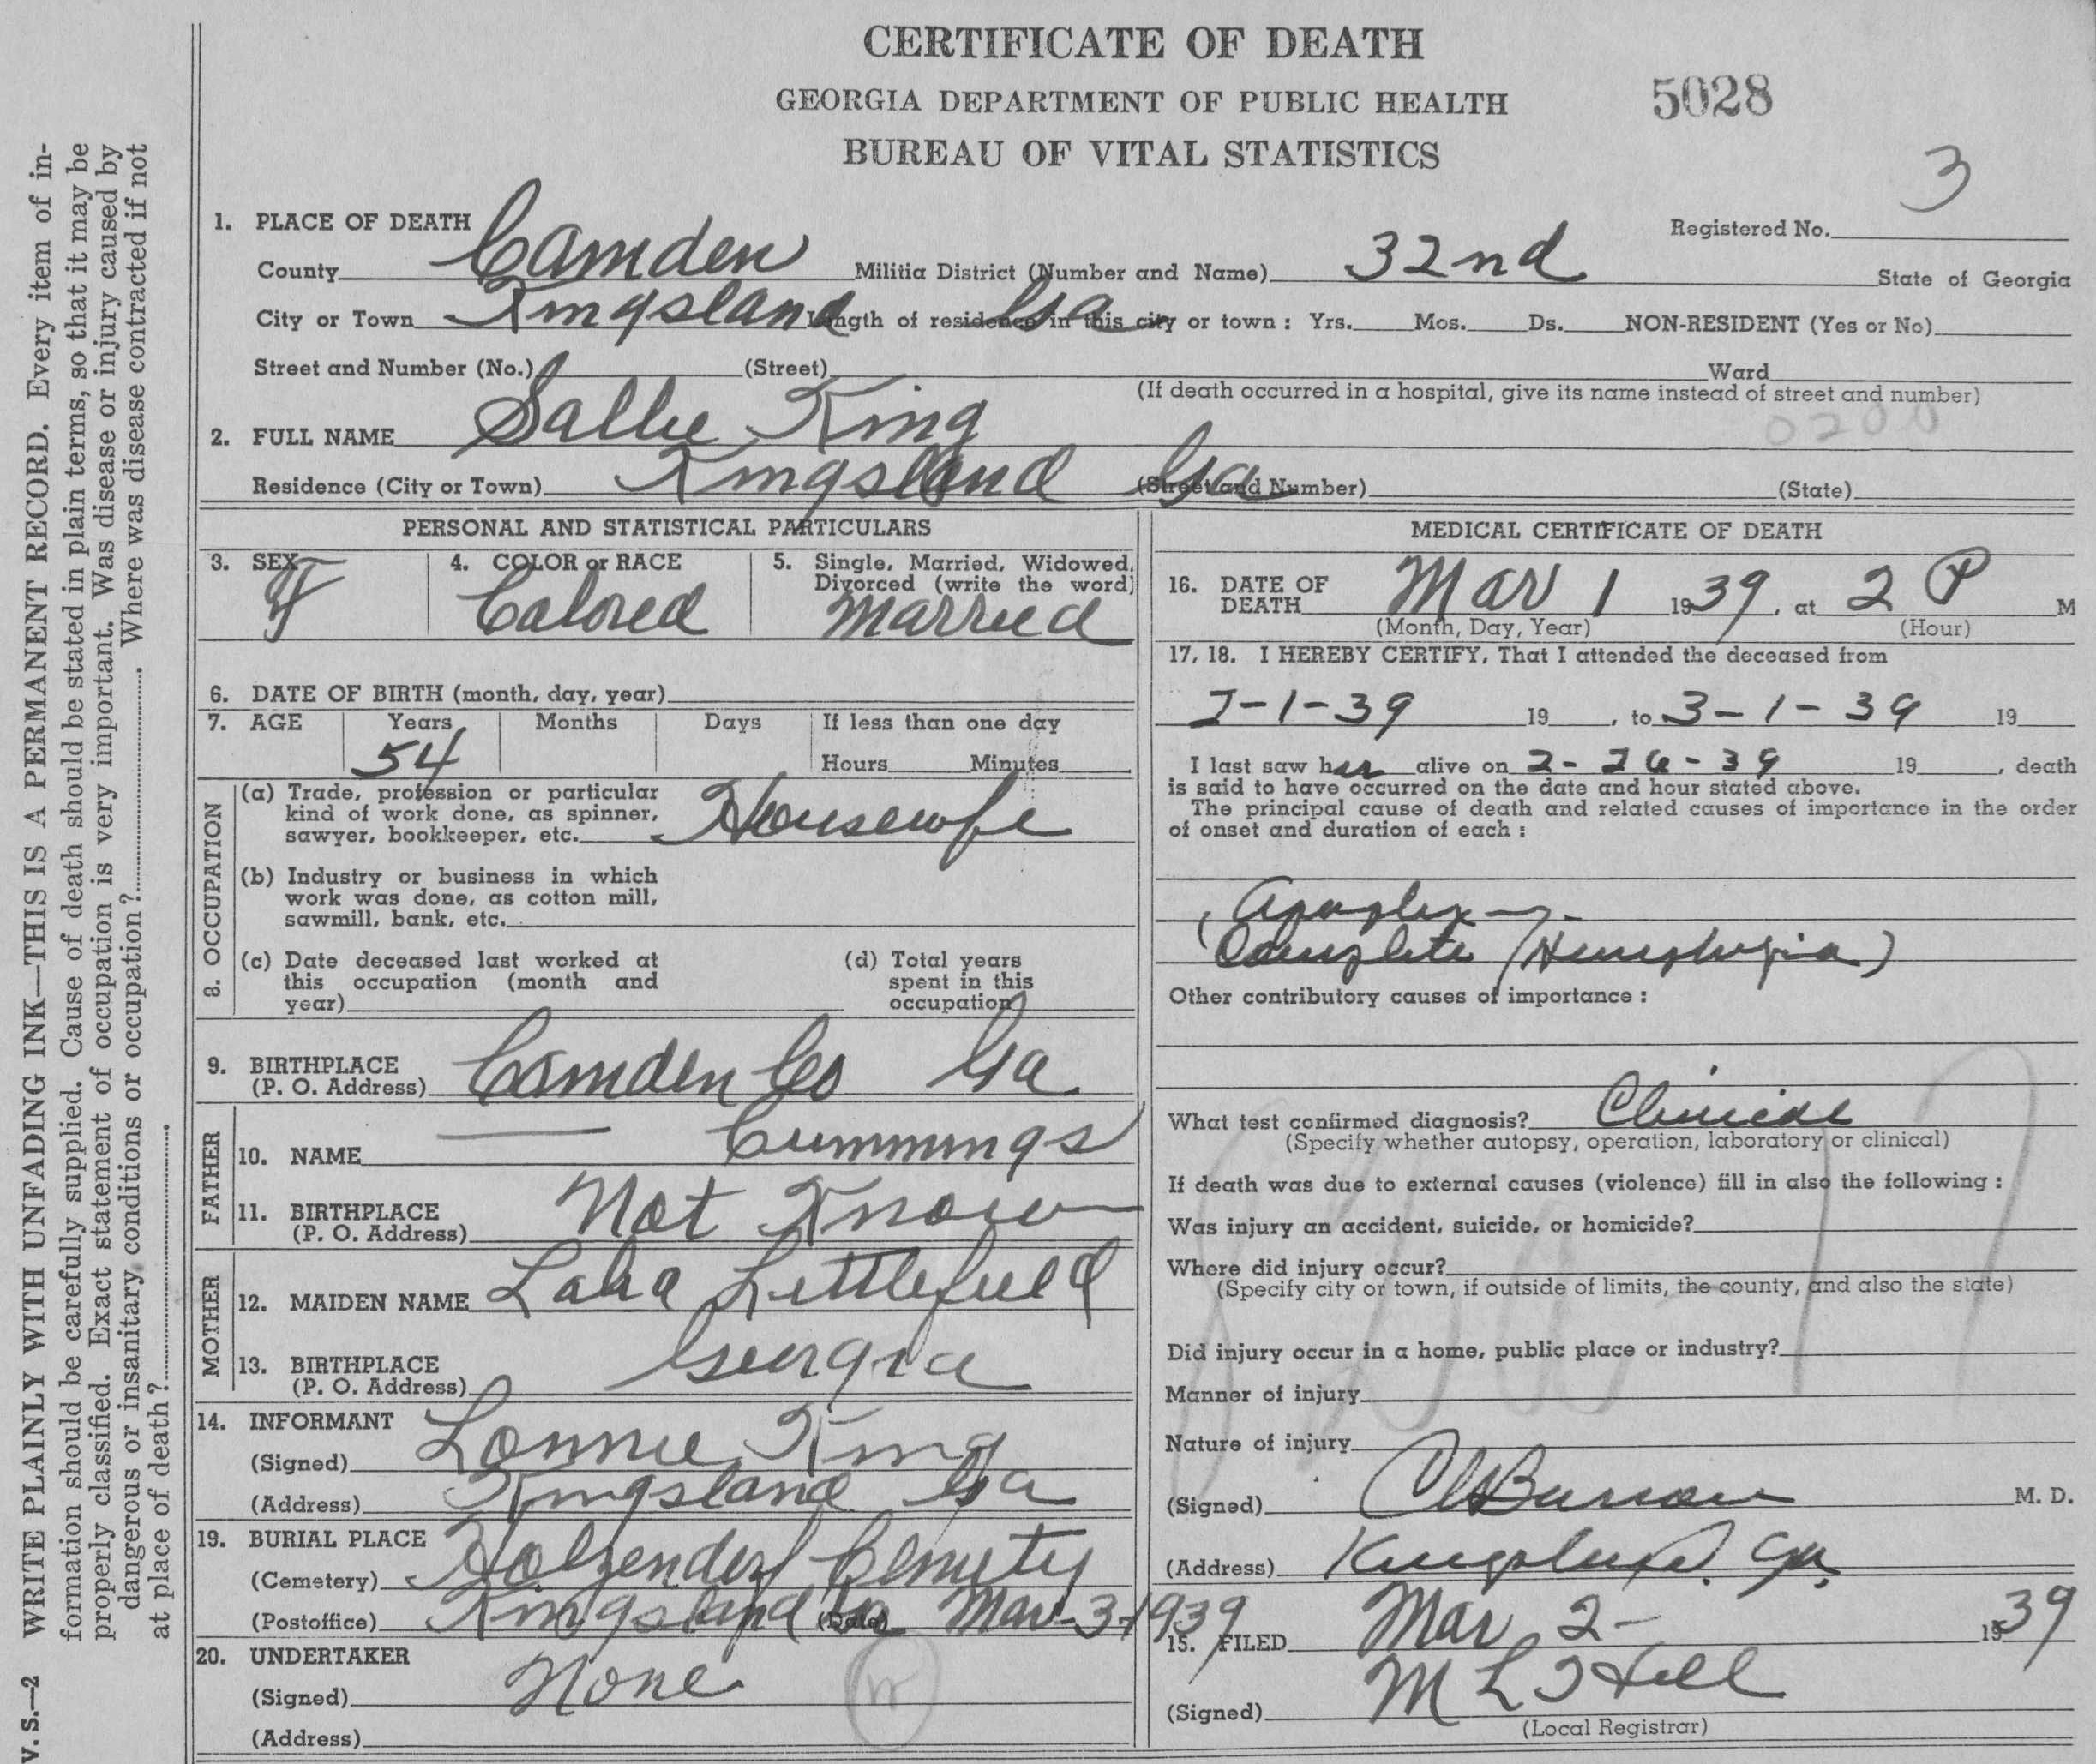 CERTIFICATE OF DEATH
GEORGIA DEPARTMENT OF PUBLIC HEALTH
5028
BUREAU OF VITAL STATISTICS
1. PLACE OF DEATH
Registered No. 3
County Camden Militia District (Number and Name) 32nd State of Georgia
City or Town Kingsland Ga Length of residence in this city or town: Yrs. Mos. Ds. NON-RESIDENT (Yes or No)
Street and Number (No.) (Street) Ward
(If death occurred in a hospital, give its name instead of street and number)
0200
2. FULL NAME Sallie King
Residence (City or Town) Kingsland Ga (Street and Number) (State)
PERSONAL AND STATISTICAL PARTICULARS
3. SEX F
4. COLOR or RACE Colored
5. Single, Married, Widowed,
Divorced (write the word)
Married
6. DATE OF BIRTH (month, day, year)
7. AGE Years Months Days If less than one day
54 Hours Minutes
8. OCCUPATION
(a) Trade, profession or particular
kind of work done, as spinner,
sawyer, bookkeeper, etc. Housewife
(b) Industry or business in which
work was done, as cotton mill,
sawmill, bank, etc.
(c) Date deceased last worked at
this occupation (month and
year)
(d) Total years
spent in this
occupation
9. BIRTHPLACE
(P. O. Address) Camden Co Ga
FATHER
10. NAME — Cummings
11. BIRTHPLACE
(P. O. Address) Not Know
MOTHER
12. MAIDEN NAME Littlefield
13. BIRTHPLACE
(P. O. Address) Georgia
14. INFORMANT
(Signed) Lonnie King
(Address) Kingsland Ga
19. BURIAL PLACE
(Cemetery)
(Postoffice) Kingsland Ga (Date) Mar-3-1939
20. UNDERTAKER
(Signed) None
(Address)
MEDICAL CERTIFICATE OF DEATH
16. DATE OF
DEATH Mar 1 1939, at 2 P M
(Month, Day, Year) (Hour)
17, 18. I HEREBY CERTIFY, That I attended the deceased from
19 , to 3-1-39 19
I last saw her alive on 2-26-39 19 , death
is said to have occurred on the date and hour stated above.
The principal cause of death and related causes of importance in the order
of onset and duration of each:
Apoplexy
Complete (Hemiplegia)
Other contributory causes of importance:
What test confirmed diagnosis? Clinical
(Specify whether autopsy, operation, laboratory or clinical)
If death was due to external causes (violence) fill in also the following:
Was injury an accident, suicide, or homicide?
Where did injury occur?
(Specify city or town, if outside of limits, the county, and also the state)
Did injury occur in a home, public place or industry?
Manner of injury
Nature of injury
(Signed) M. D.
(Address) Kingsland, Ga.
15. FILED Mar 2- 1939
(Signed) Hill
(Local Registrar)
V. S.—2 WRITE PLAINLY WITH UNFADING INK—THIS IS A PERMANENT RECORD. Every item of in-
formation should be carefully supplied. Cause of death should be stated in plain terms, so that it may be
properly classified. Exact statement of occupation is very important. Was disease or injury caused by
dangerous or insanitary conditions or occupation? Where was disease contracted if not
at place of death?